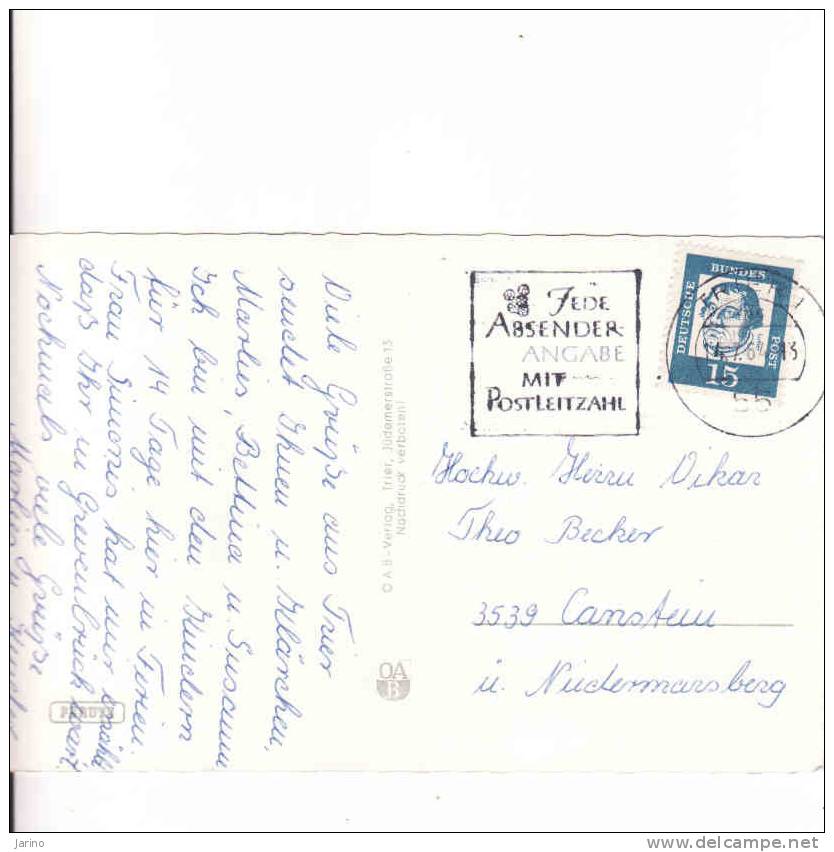 Viele Grüße aus Trier
sendet Ihnen u. Klärchen,
Marlies, Bettina u. Susanne
Ich bin mit den Kindern
für 14 Tage hier in Ferien.
Frau Simonis hat mir erzählt
daß Ihr in Grevenbrück wart.
Nochmals viele Grüße
Marlies u. Kinder
© A B - Verlag, Trier, Jüdemerstraße 13
Nachdruck verboten!
OA
B
PERUTZ
JEDE
ABSENDER-
ANGABE
MIT
POSTLEITZAHL
DEUTSCHE
BUNDES
POST
15
TRIER
13
55
Hochw. Herrn Vikar
Theo Becker
3539 Canstein
ü. Niedermarsberg
Jarino
www.delcampe.net